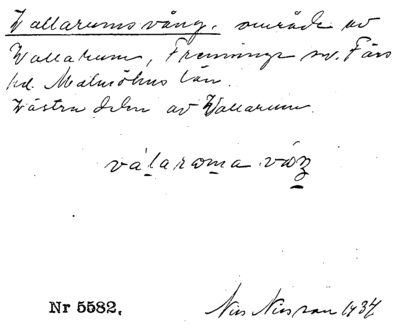 Vallarums vång. område av
Vallarum, Frenninge sn. Färs
hd. Malmöhus län.
Västra delen av Vallarum.
válaroma váŋ
Nr 5582.
Nils Nilsson 1937